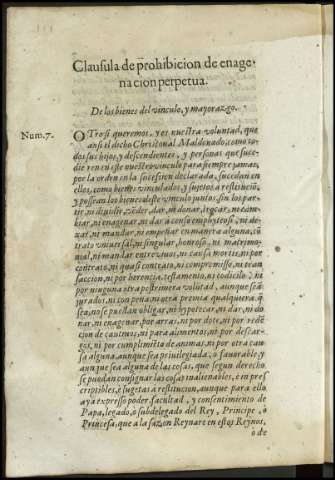 Clausula de prohibicion de enage-
nacion perpetua.
De los bienes del vinculo, y mayorazgo.
Num. 7.
OTrosi queremos, y es nuestra voluntad, que
ansi el dicho Christoual Maldonado, como to-
dos sus hijos, y descendientes, y personas que succe-
dieren en este nuestro vinculo para siempre jamas,
por la orden en la sucession declarada, sucedan en
ellos, como bienes vinculados y sujetos a restituciō,
y possean los bienes deste vinculo juntos, sin los par-
tir, ni diuidir, vender, dar, ni donar, trocar, ni cam-
biar, ni enagenar, ni dar a censo emphyteosi, ni de-
xar, ni mandar, ni empeñar en manera alguna, cō
trato vniuersal, ni singular, honroso, ni matrimo-
nial, ni mandar entre viuos, ni causa mortis, ni por
contrato, ni quasi contrato, ni compromisso, ni tran
saccion, ni por herencia, testamento, ni codicilo, ni
por ninguna otra postrimera volūtad, aunque seā
jurados, ni con pena ni otra premia qualquiera, q̄
sea, no se puedan obligar, ni hypotecar, ni dar, ni do
nar, ni enagenar, por arras, ni por dote, ni por redē
cion de cautiuos, ni para alimentos, ni por descar-
gos, ni por cumplimiēto de animas, ni por otra cau
sa alguna, aunque sea priuilegiada, o fauorable, y
aunque sea alguna de las cosas, que segun derecho
se puedan consignar las cosas inalienables, e impres
criptibles, e sugetas a restitucion, aunque para ello
aya expresso poder, facultad, y consentimiento de
Papa, legado, o subdelegado del Rey, Principe, o
Princesa, que a la sazon Reynare en estos Reynos,
o de